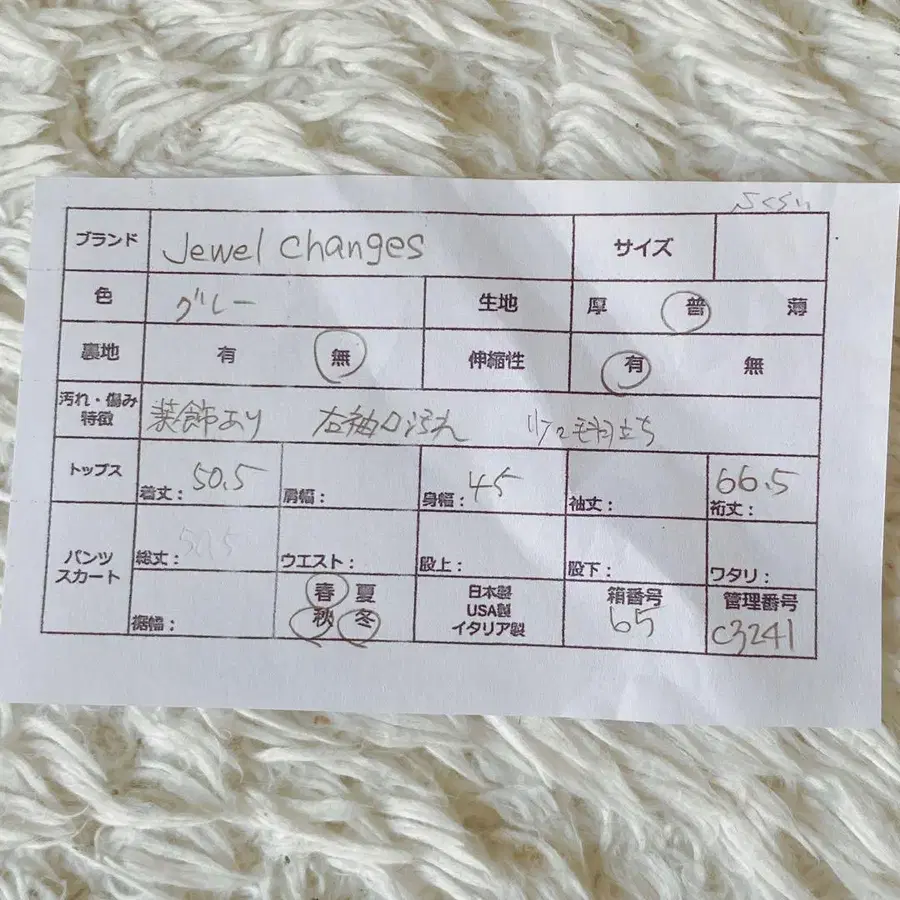 ブランド Jewel Changes サイズ
色 グレー 生地 厚 普 薄
裏地 有 無 伸縮性 有 無
汚れ・傷み 特徴 装飾あり 右袖口汚れ 毛羽立ち
トップス 着丈: 50.5 肩幅: 身幅: 45 袖丈: 裄丈: 66.5
パンツ スカート 総丈: 50.5 ウエスト: 股上: 股下: ワタリ:
裾幅: 春 夏 秋 冬 日本製 USA製 イタリア製 箱番号 65 管理番号 C3241